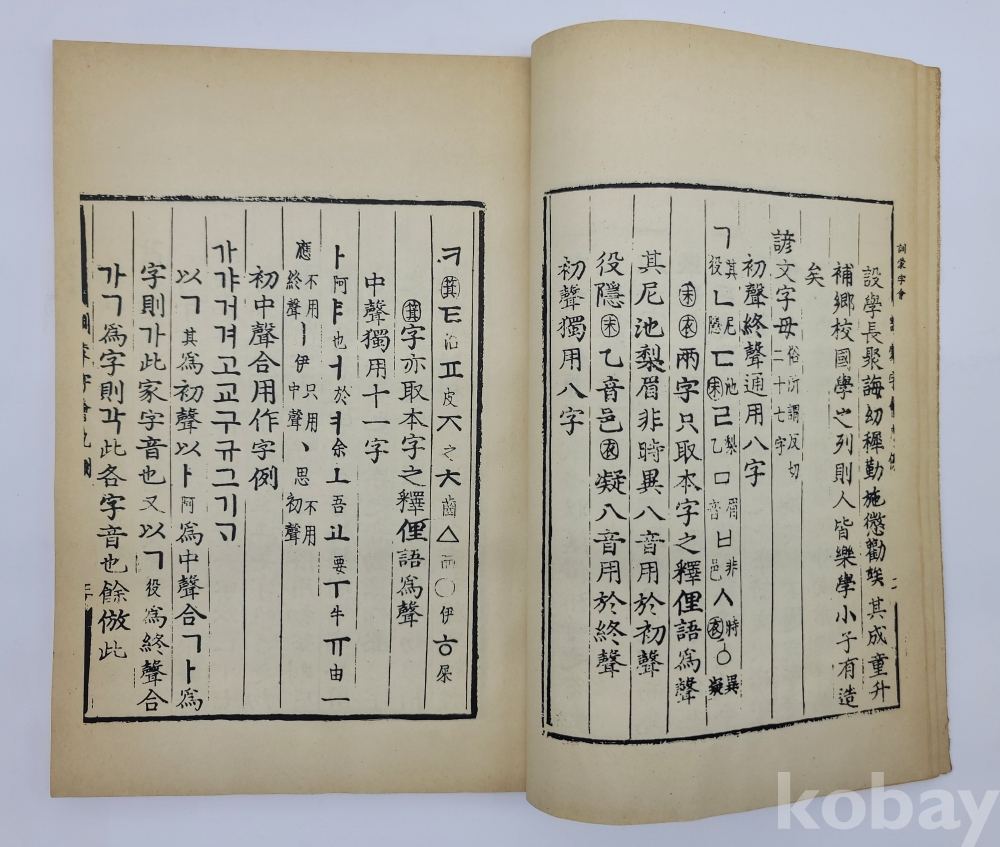 訓蒙字會
設學長聚誨幼穉勤施懲勸竢其成童升
補鄉校國學之列則人皆樂學小子有造
矣
諺文字母俗所謂反切二十七字
初聲終聲通用八字
ㄱ其役ㄴ尼隱ㄷ池末ㄹ梨乙ㅁ眉音ㅂ非邑ㅅ時衣ㆁ異凝
末衣兩字只取本字之釋俚語爲聲
其尼池梨眉非時異八音用於初聲
役隱末乙音邑衣凝八音用於終聲
初聲獨用八字
ㅋ箕ㅌ治ㅍ皮ㅈ之ㅊ齒ㅿ而ㅇ伊ㅎ屎
箕字亦取本字之釋俚語爲聲
中聲獨用十一字
ㅏ阿ㅑ也ㅓ於ㅕ余ㅗ吾ㅛ要ㅜ牛ㅠ由ㅡ
應不用終聲ㅣ伊只用中聲ㆍ思不用初聲
初中聲合用作字例
가갸거겨고교구규그기ᄀᆞ
以ㄱ其爲初聲以ㅏ阿爲中聲合ㄱㅏ爲
字則가此家字音也又以ㄱ役爲終聲合
가ㄱ爲字則각此各字音也餘倣此
kobay